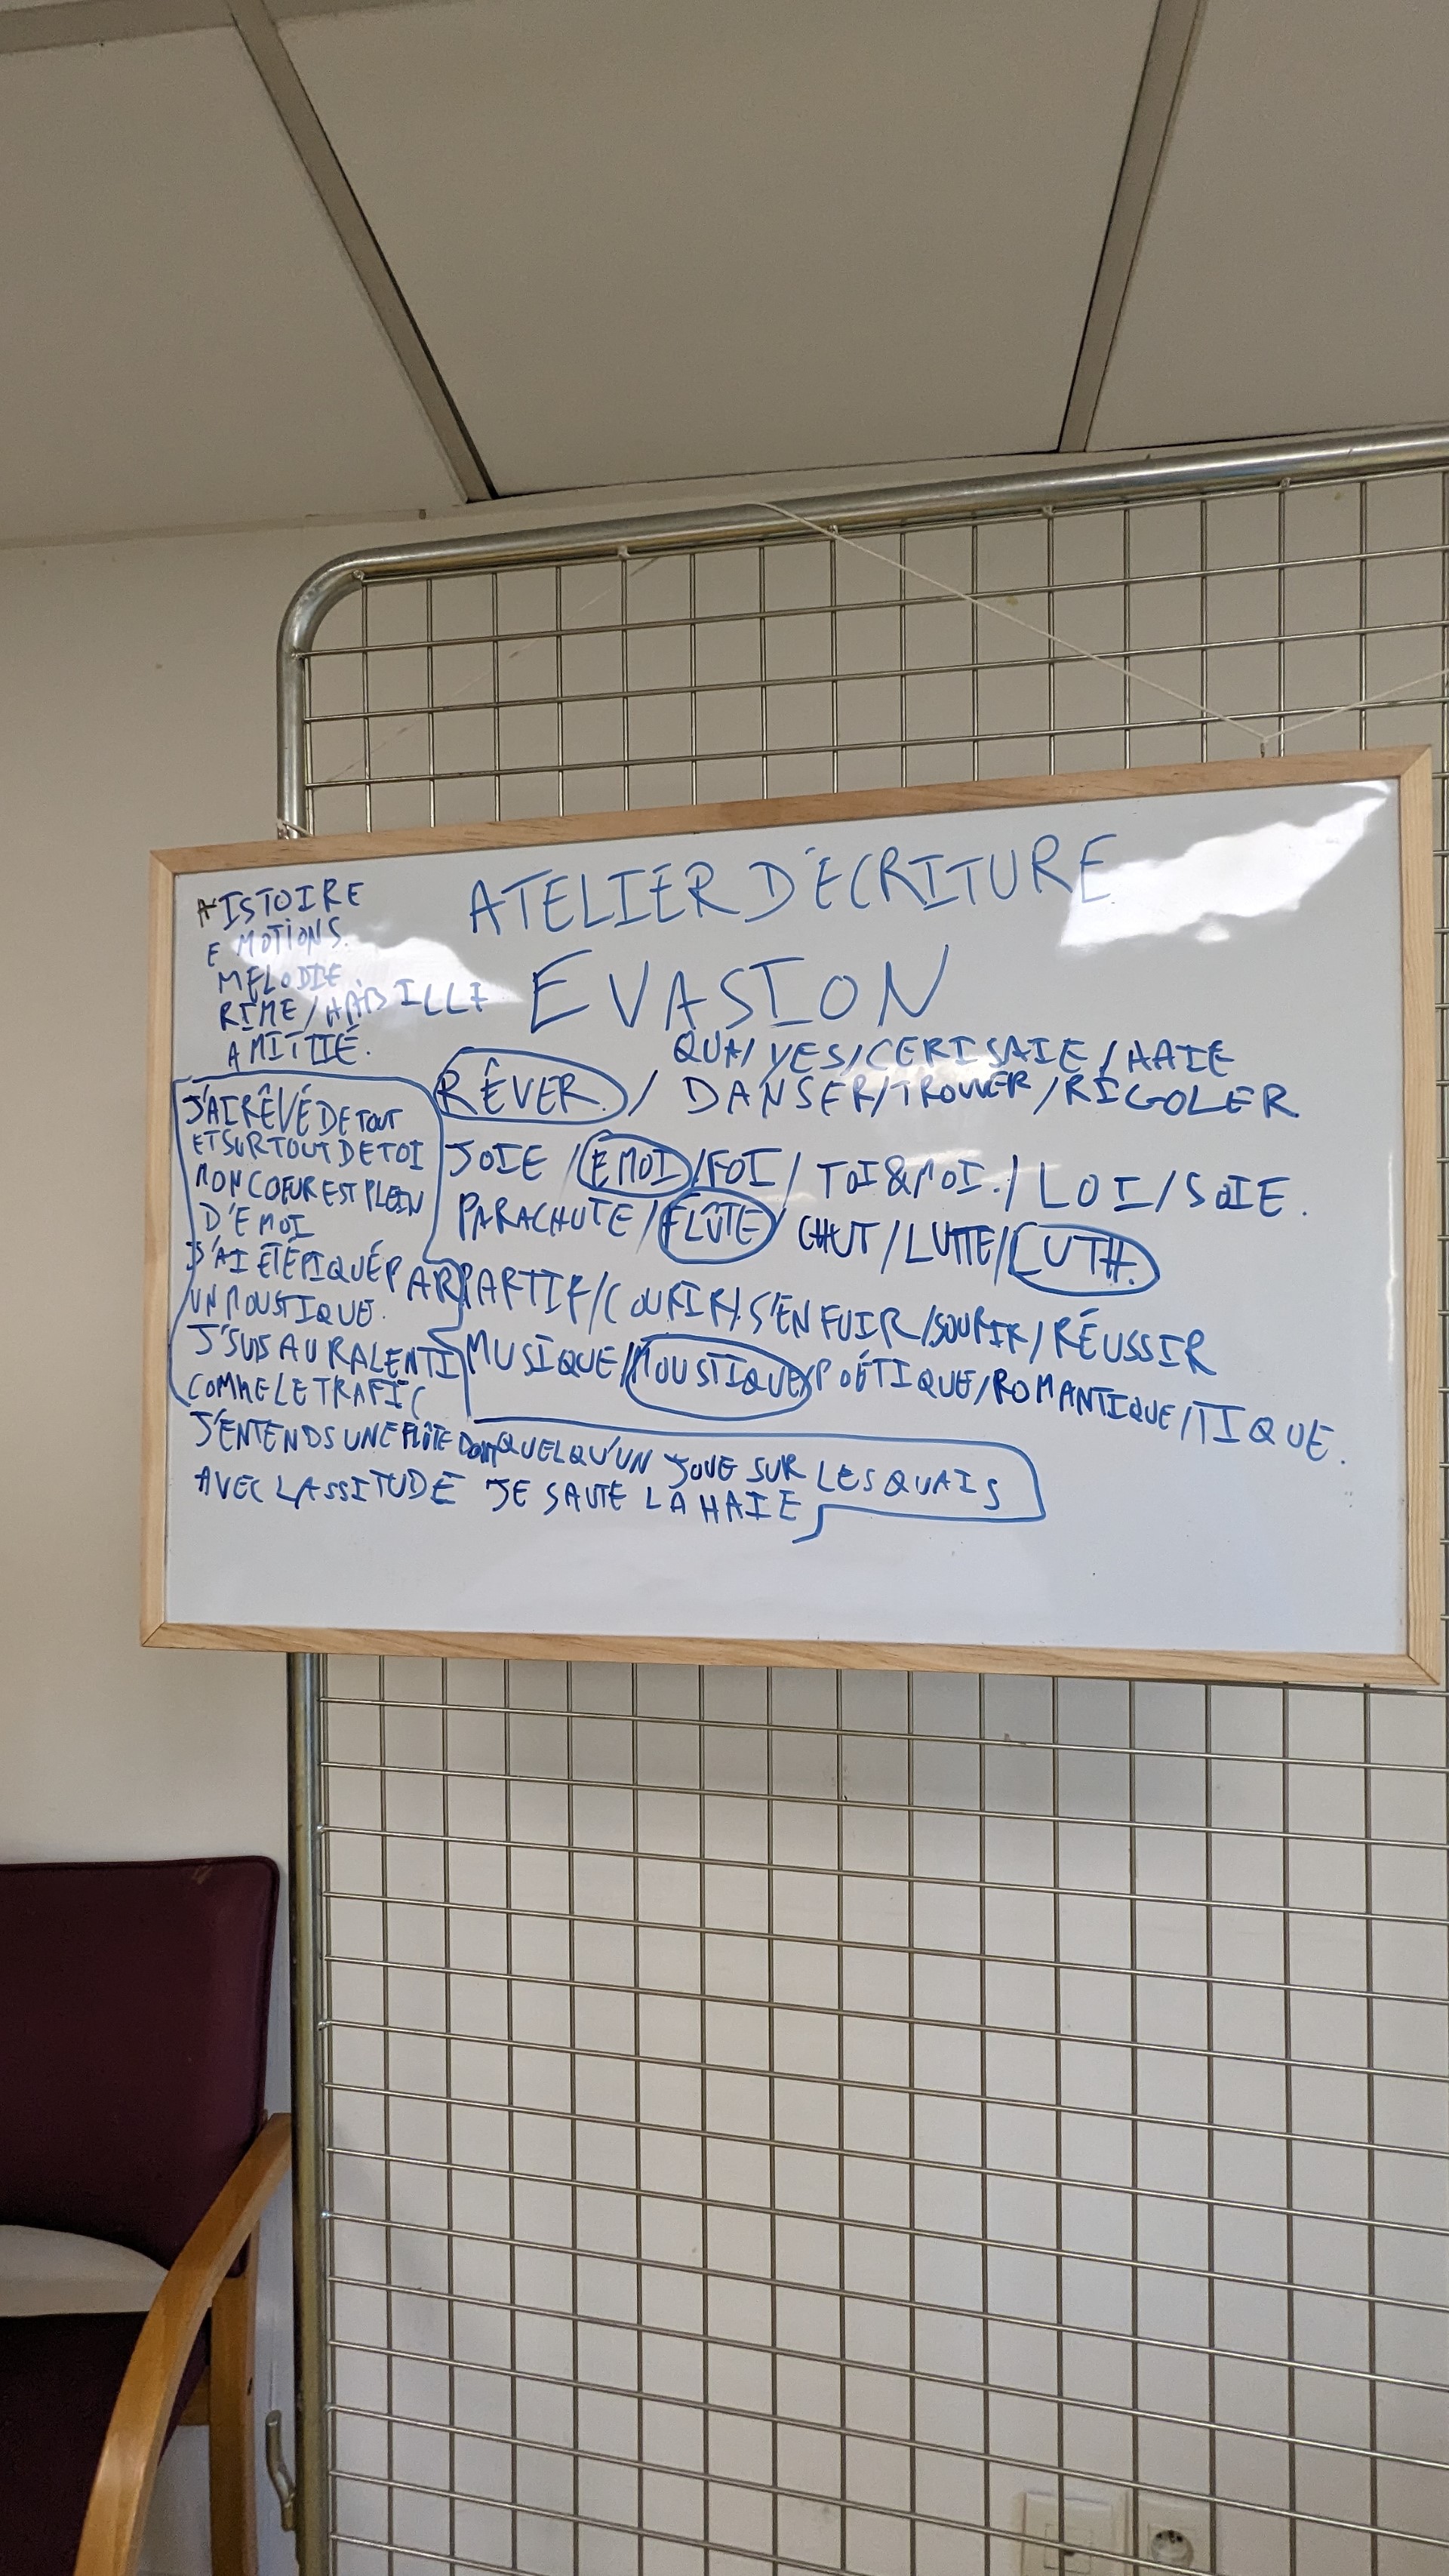 ATELIER D'ÉCRITURE
EVASION
HISTOIRE
EMOTIONS.
MÉLODIE.
RIME / HABILLE
AMITIÉ.
QUAI / YES / CERISAIE / HAIE
RÊVER. / DANSER / TROUVER / RIGOLER
JOIE / EMOI / FOI / TOI & MOI. / LOI / SOIE.
PARACHUTE / FLÛTE / CHUT / LUTTE / LUTH.
PARTIR / COURIR / S'ENFUIR / SOURIR / RÉUSSIR
MUSIQUE / MOUSTIQUE / POÉTIQUE / ROMANTIQUE / TIQUE.
J'AI RÊVÉ DE TOUT
ET SURTOUT DE TOI
MON COEUR EST PLEIN
D'EMOI
J'AI ÉTÉ PIQUÉ PAR
UN MOUSTIQUE.
J'SUIS AU RALENTI
COMME LE TRAFIC
J'ENTENDS UNE FLÛTE DONT QUELQU'UN JOUE SUR LES QUAIS
AVEC LASSITUDE JE SAUTE LA HAIE